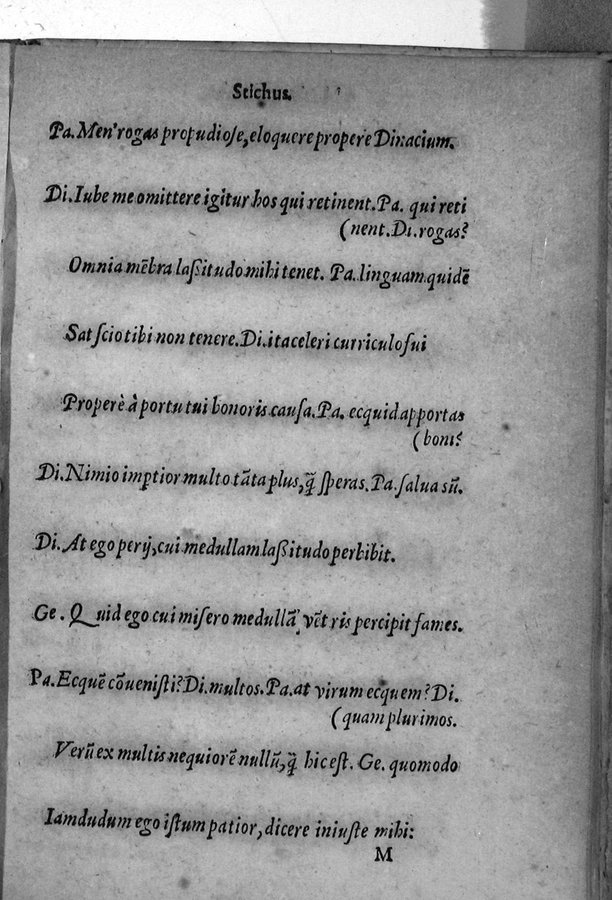 Stichus.
Pa. Men' rogas propudiose, eloquere propere Dinacium.
Di. Iube me omittere igitur hos qui retinent. Pa. qui reti
(nent. Di. rogas?
Omnia mẽbra laſsitudo mihi tenet. Pa. linguam quidẽ
Sat ſcio tibi non tenere. Di. ita celeri curriculo fui
Properè à portu tui honoris cauſa. Pa. ecquid apportas
(boni?
Di. Nimio imptior multo tãta plus, q̃ ſperas. Pa. ſalua sũ.
Di. At ego perij, cui medullam laſsitudo perbibit.
Ge. Quid ego cui miſero medullã vẽtris percipit fames.
Pa. Ecquẽ cõueniſti? Di. multos. Pa. at virum ecquem? Di.
(quamplurimos.
Verũ ex multis nequiorẽ nullũ, q̃ hic eſt. Ge. quomodo
Iamdudum ego iſtum patior, dicere iniuſte mihi:
M